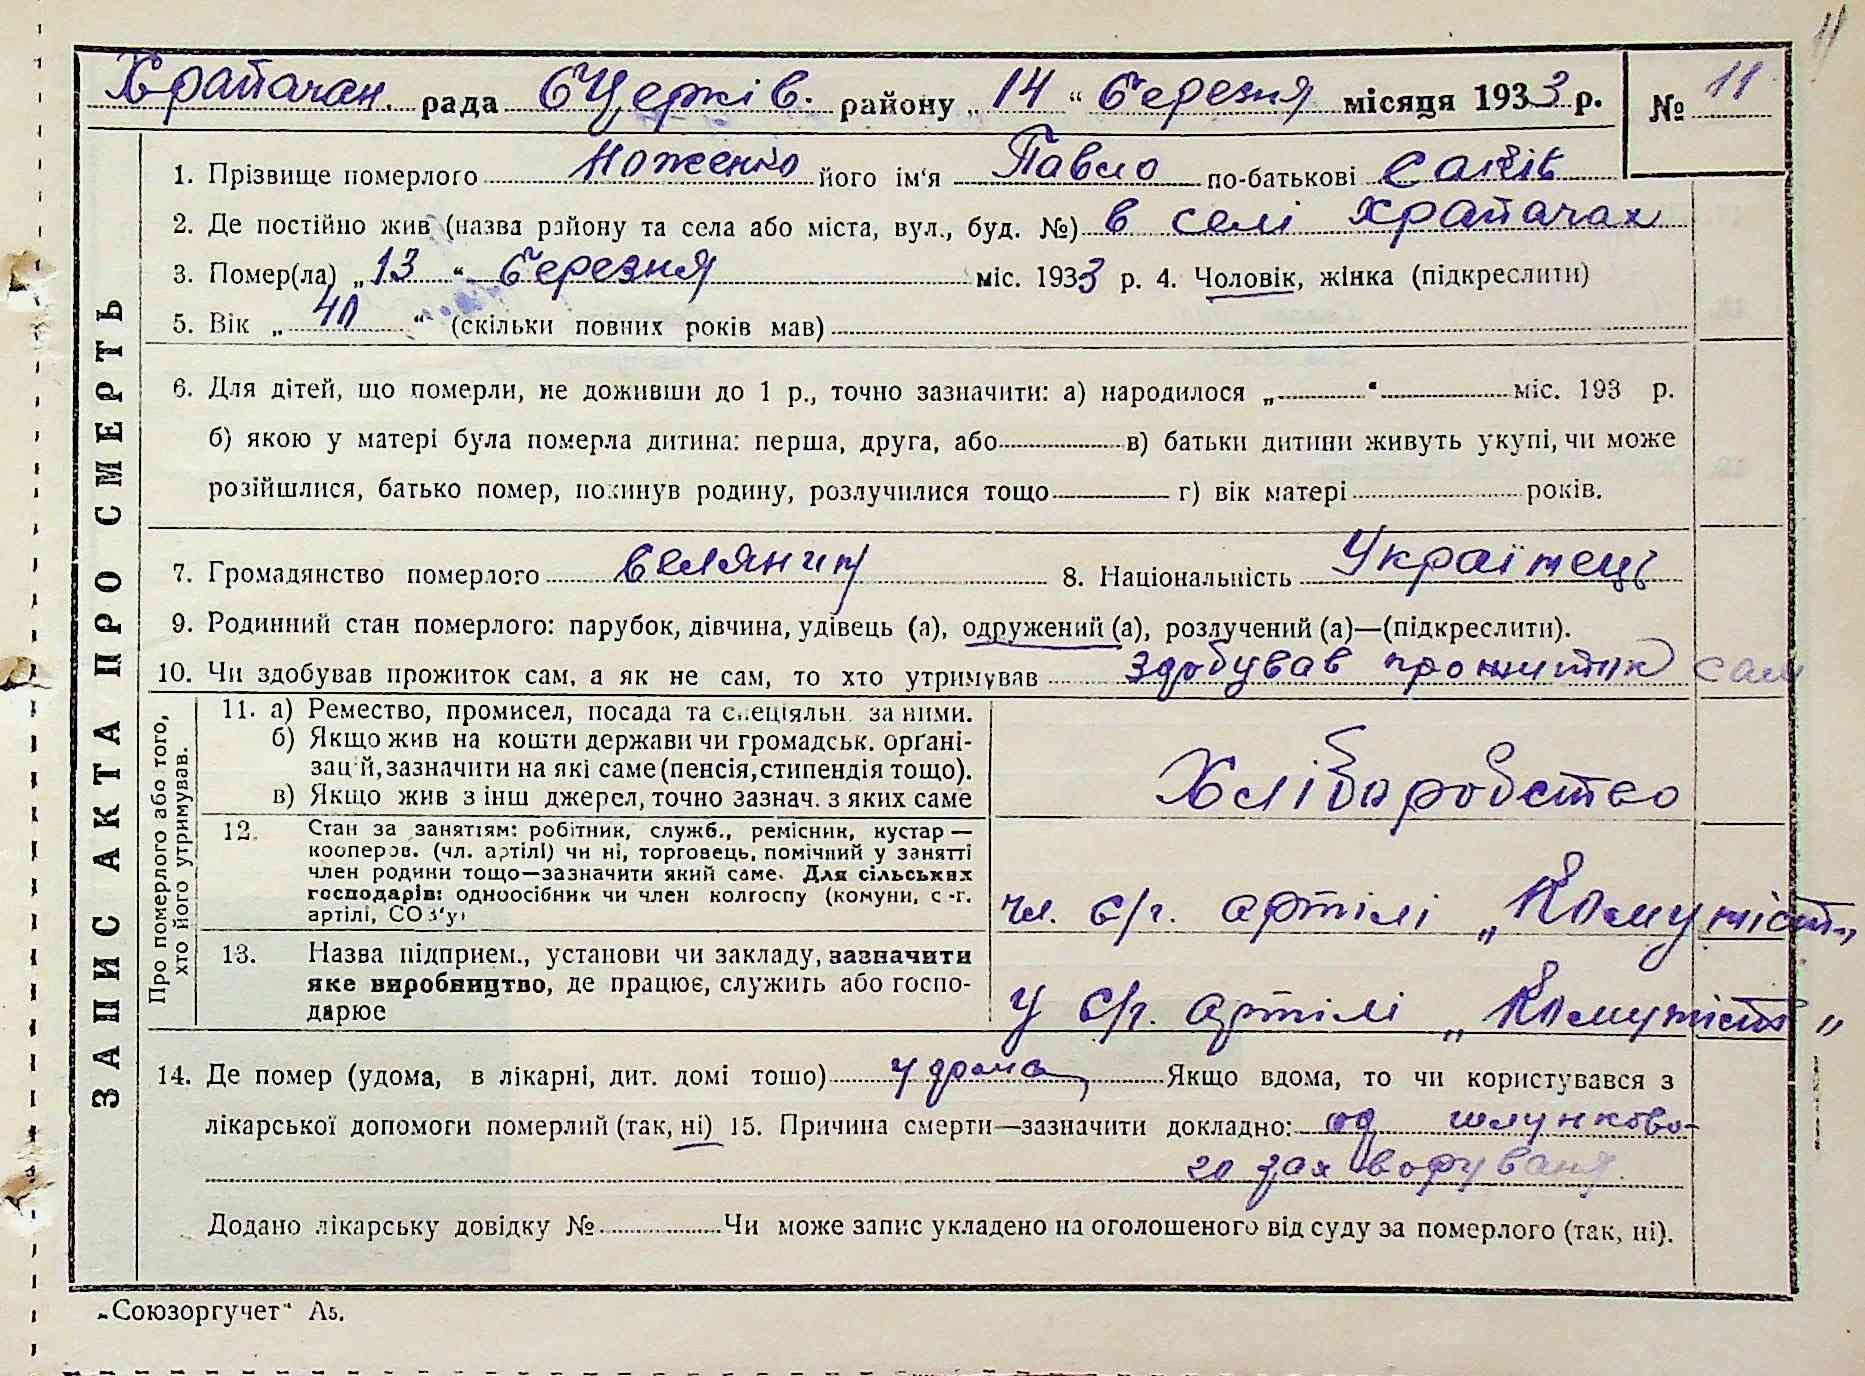 11
Храпачан. рада бЦерків. району „14“ березня місяця 1933 р. № 11
1. Прізвище померлого Ноженко його ім'я Павло по-батькові
2. Де постійно жив (назва району та села або міста, вул., буд. №) в селі Храпачах
3. Помер(ла) „13“ березня міс. 1933 р. 4. Чоловік, жінка (підкреслити)
5. Вік „40“ (скільки повних років мав)
6. Для дітей, що померли, не доживши до 1 р., точно зазначити: а) народилося „ “ міс. 193 р.
б) якою у матері була померла дитина: перша, друга, або в) батьки дитини живуть укупі, чи може
розійшлися, батько помер, покинув родину, розлучилися тощо г) вік матері років.
7. Громадянство померлого селянин 8. Національність Українець
9. Родинний стан померлого: парубок, дівчина, удівець (а), одружений (а), розлучений (а)—(підкреслити).
10. Чи здобував прожиток сам, а як не сам, то хто утримував здобував прожиток сам
ЗАПИС АКТА ПРО СМЕРТЬ
Про померлого або того,
хто його утримував.
11. а) Ремество, промисел, посада та спеціяльн. за ними.
б) Якщо жив на кошти держави чи громадськ. орґані-
зацій, зазначити на які саме (пенсія, стипендія тощо).
в) Якщо жив з інш джерел, точно зазнач. з яких саме
Хліборобство
12. Стан за занятіям: робітник, служб., ремісник, кустар —
кооперов. (чл. артілі) чи ні, торговець, помічний у занятті
член родини тощо—зазначити який саме. Для сільських
господарів: одноосібник чи член колгоспу (комуни, с.-г.
артілі, СОЗ'у)
чл. с/г. артілі „Комуніст„
13. Назва підприєм., установи чи закладу, зазначити
яке виробництво, де працює, служить або госпо-
дарює
у с/г. артілі „Комуніст„
14. Де помер (удома, в лікарні, дит. домі тощо) Якщо вдома, то чи користувався з
лікарської допомоги померлий (так, ні) 15. Причина смерти—зазначити докладно: од шлунково-
го захворування.
Додано лікарську довідку № Чи може запис укладено на оголошеного від суду за померлого (так, ні).
„Союзоргучет“ А5.